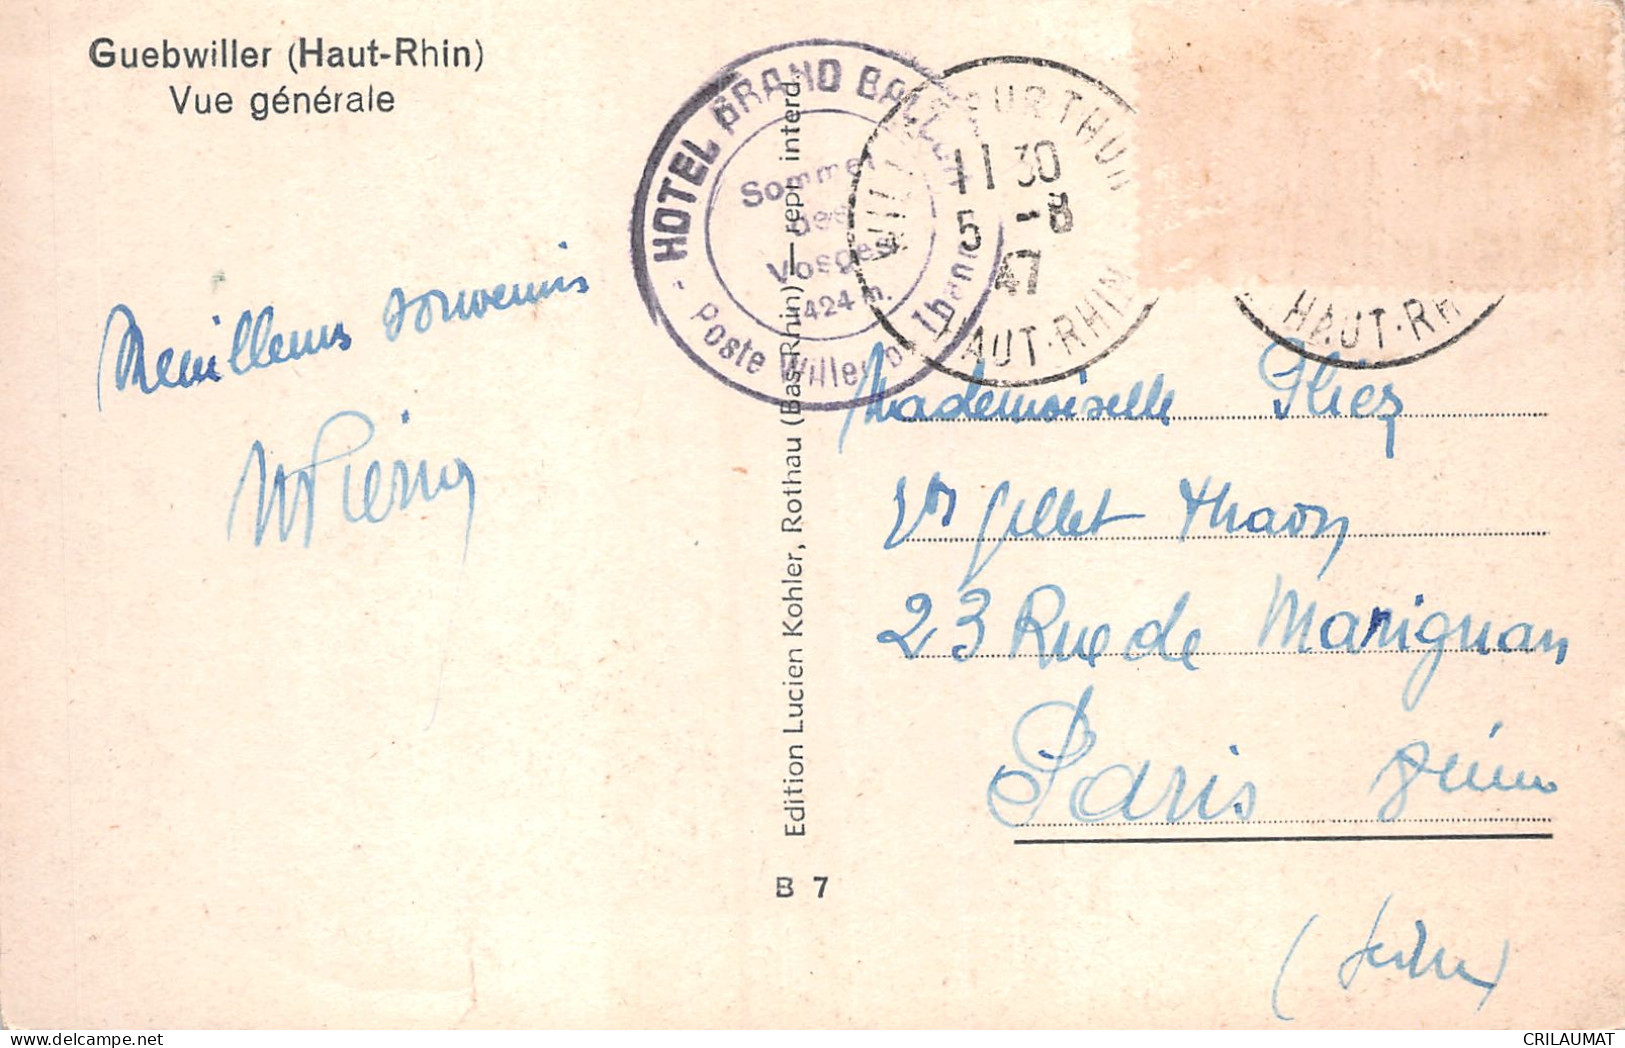 Guebwiller (Haut-Rhin)
Vue générale
HOTEL GRAND BALLON
Sommet
des
Vosges
1424 m.
- Poste Willer
WILLER SUR THUR
11 30
5 -8
47
HAUT-RHIN
HAUT-RH
Meilleurs souvenirs
Mademoiselle
Gillet Thaon
23 Rue de Marignan
Paris 8ème
(Seine)
Edition Lucien Kohler, Rothau (Bas-Rhin) — repr. interd.
B 7
CRILAUMAT